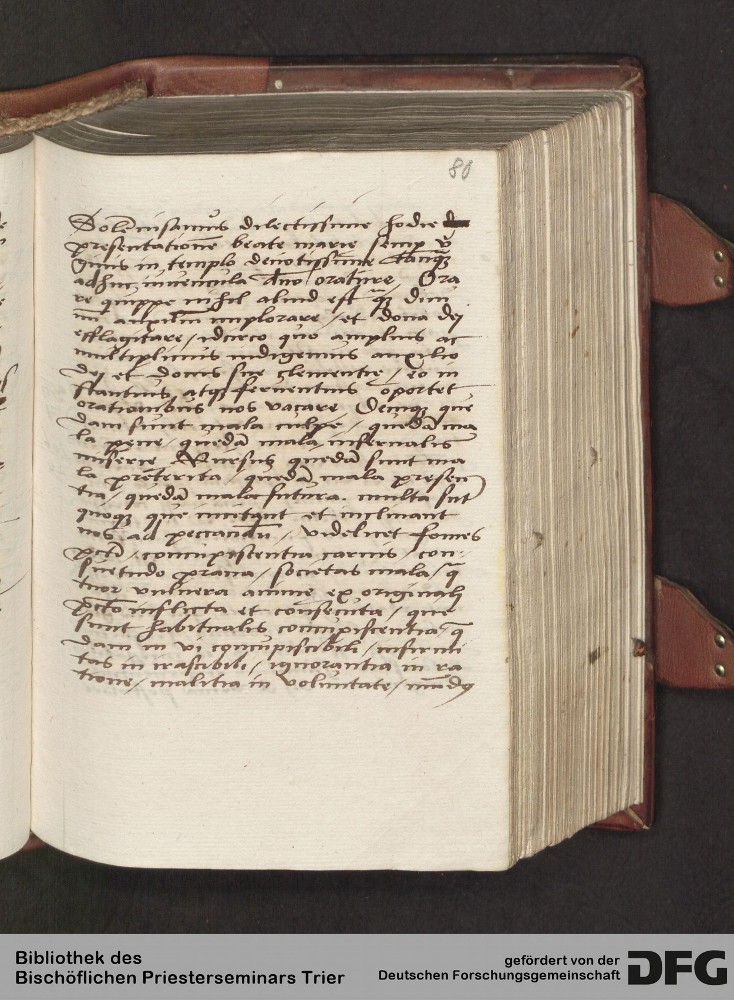 80
Sole͂nisamus dilectissime hodie
presentatione͂ beate marie semp v̓
ginis in templo devotissime tanq͂
adhuc iuvencula dn̄o orature. Ora
re quippe nihil aliud est q͂ divi
nu͂ auxiliu͂ implorare / et dona dei
efflagitare / idcirco quo amplius ac
multiplicius indigemus auxilio
dei et donis sue clementie / eo in
stantius atq ferventius oportet
orationibus nos vacare. Deniq que
dam sunt mala culpe / queda͂ ma
la pene / queda͂ mala infernalis
miserie. Rursus queda͂ sunt ma
la preterita / queda͂ mala presen
tia / queda͂ mala futura. multa su͂t
quoq que incitant et inclinant
nos ad peccandu͂ / videlicet fomes
pcti / concupiscentia carnis / con-
suetudo prava / societas mala / q̄
tuor vulnera anime ex originali
pcto inflicta et consecuta / que
sunt habitualis concupiscentia q̄
dam in vi concupiscibili / infirmi
tas in irascibili / ignorantia in ra
tione / malitia in voluntate / mundq
Bibliothek des
Bischöflichen Priesterseminars Trier
gefördert von der
Deutschen Forschungsgemeinschaft
DFG